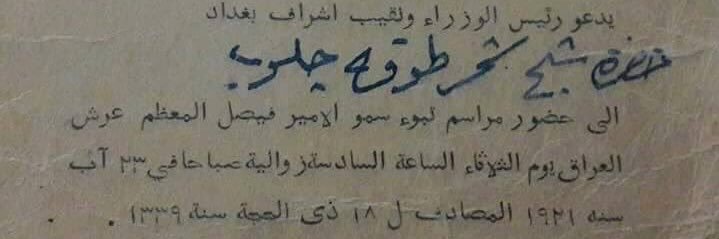 يدعو رئيس الوزراء ونقيب اشراف بغداد
حضرة شيخ طوقه چلوب
الى حضور مراسم تبوء سمو الامير فيصل المعظم عرش
العراق يوم الثلاثاء الساعة السادسة زوالية صباحا في ٢٣ آب
سنه ١٩٢١ المصادف ل ١٨ ذى الحجة سنة ١٣٣٩.